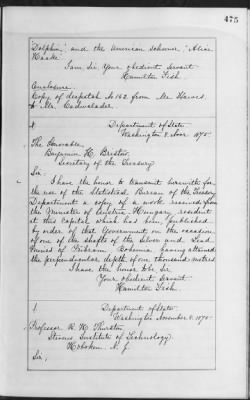 475
"Dolphin," and the American schooner, "Alice
I am Sir, Your obedient servant
Hamilton Fish.
Enclosure.
Copy of despatch No 162 from Mr.
to Mr. Cadwalader.
Department of State
Washington 8. Novr 1875
The Honorable
Benjamin H. Bristow,
Secretary of the Treasury
Sir:
I have the honor to transmit herewith for
the use of the Statistical Bureau of the Treasury
Department a copy of a work received from
the Minister of Austria Hungary, resident
at this Capital, which has been published
by order of that Government, on the occasion
of one of the shafts of the Silver and Lead
mines of Pribram, Bohemia having attained
the perpendicular depth of one thousand metres
I have the honor to be, Sir
Your obedient servant
Hamilton Fish.
Department of State
Washington November 8. 1875
Professor R. H. Thurston
Stevens Institute of Technology.
Hoboken. N. J.
Sir,